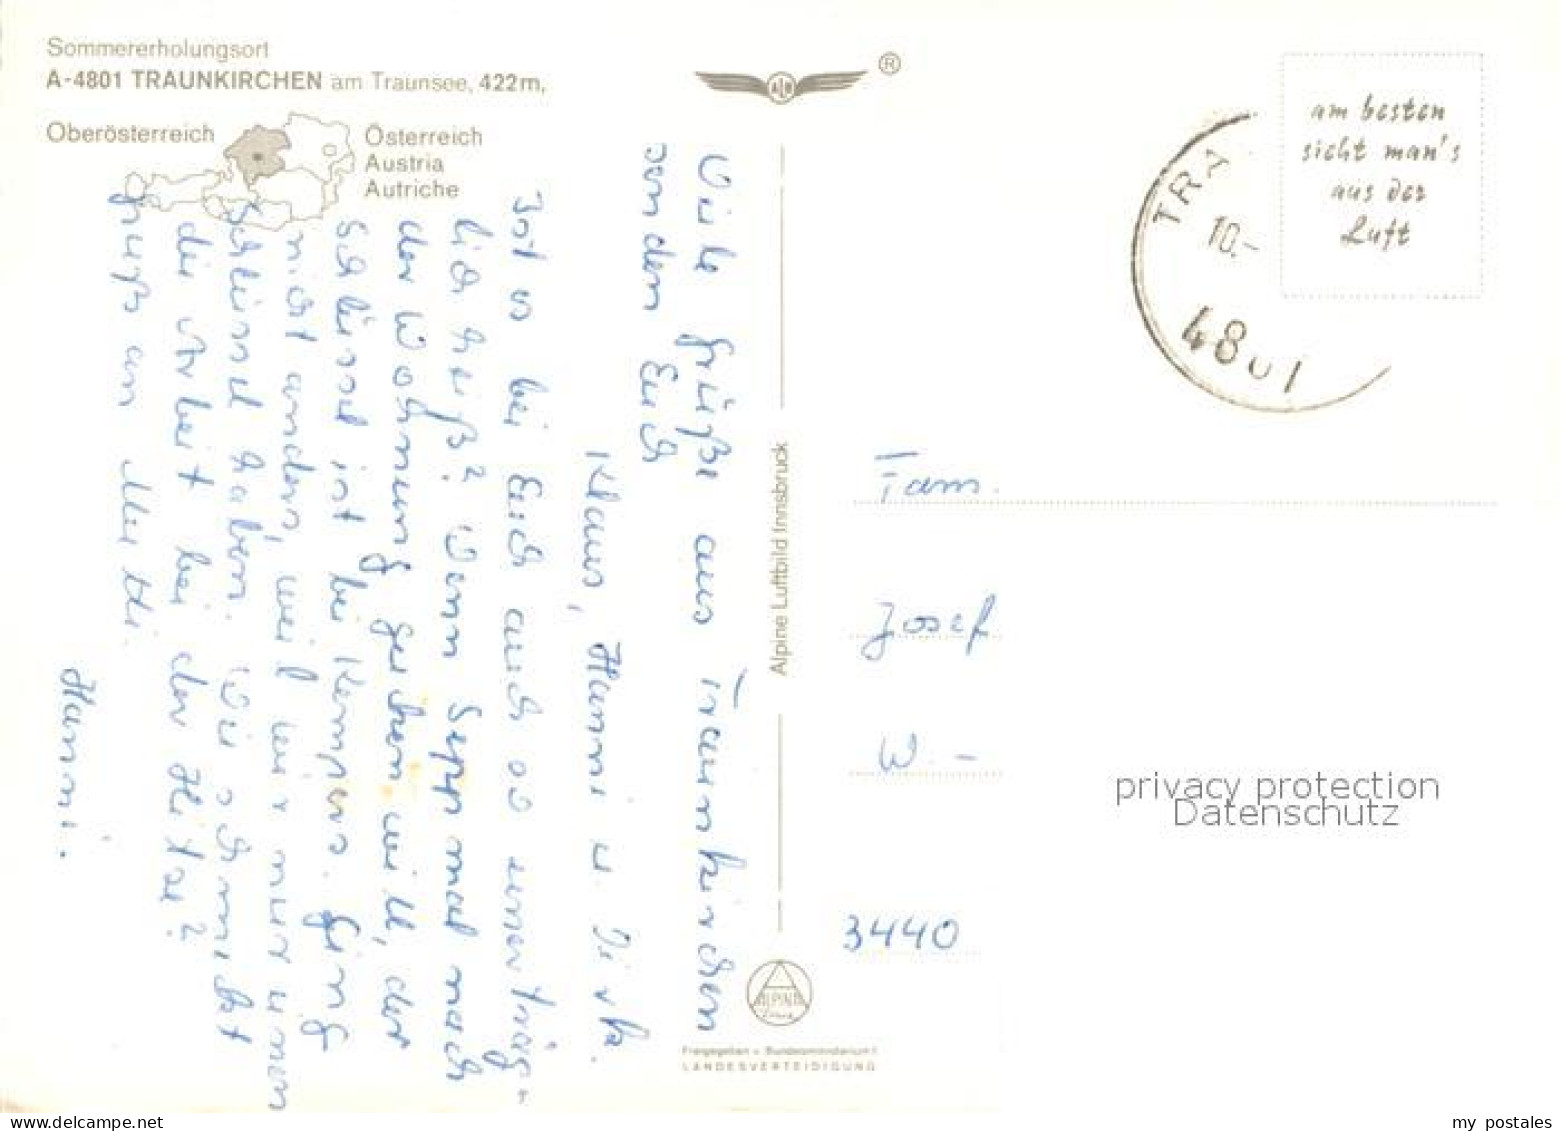 Sommererholungsort
A-4801 TRAUNKIRCHEN am Traunsee, 422m,
Oberösterreich
Österreich
Austria
Autriche
®
am besten
sieht man's
aus der
Luft
TRA
10.-
4801
Viele Grüße aus Traunkirchen
senden Euch
Klaus, Hanni u. Dirk.
Ist es bei Euch auch so unerträg-
lich heiß? Wenn Sepp mal nach
der Wohnung gucken will, der
Schlüssel ist bei Kempers. Ging
nicht anders, weil wir nur einen
Schlüssel haben. Wie schmeckt
die Arbeit bei der Hitze?
Gruß an
Hanni.
Alpine Luftbild Innsbruck
ALPINE
Freigegeben v. Bundesministerium f.
LANDESVERTEIDIGUNG
Fam.
Josef
W. -
3440
privacy protection
Datenschutz
my postales